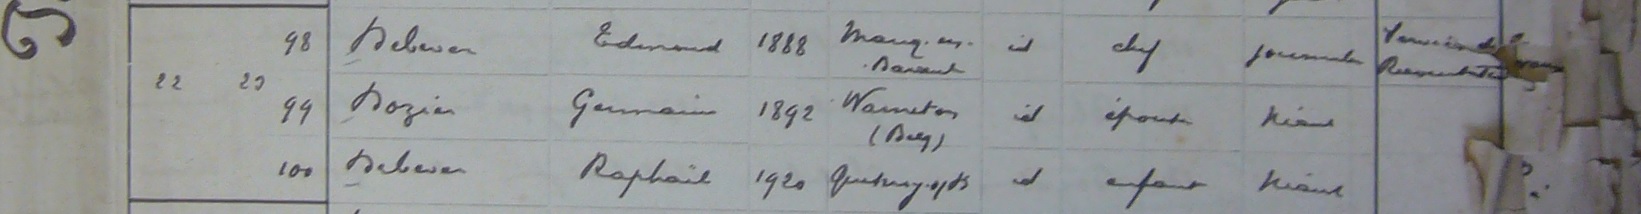 98 Debever Edmond 1888 Marcq-en-Baroeul id chef journalier
22 23
99 Dozier Germaine 1892 Warneton (Belg) id épouse Néant
100 Debever Raphaël 1920 Quesnoy s/D id enfant Néant